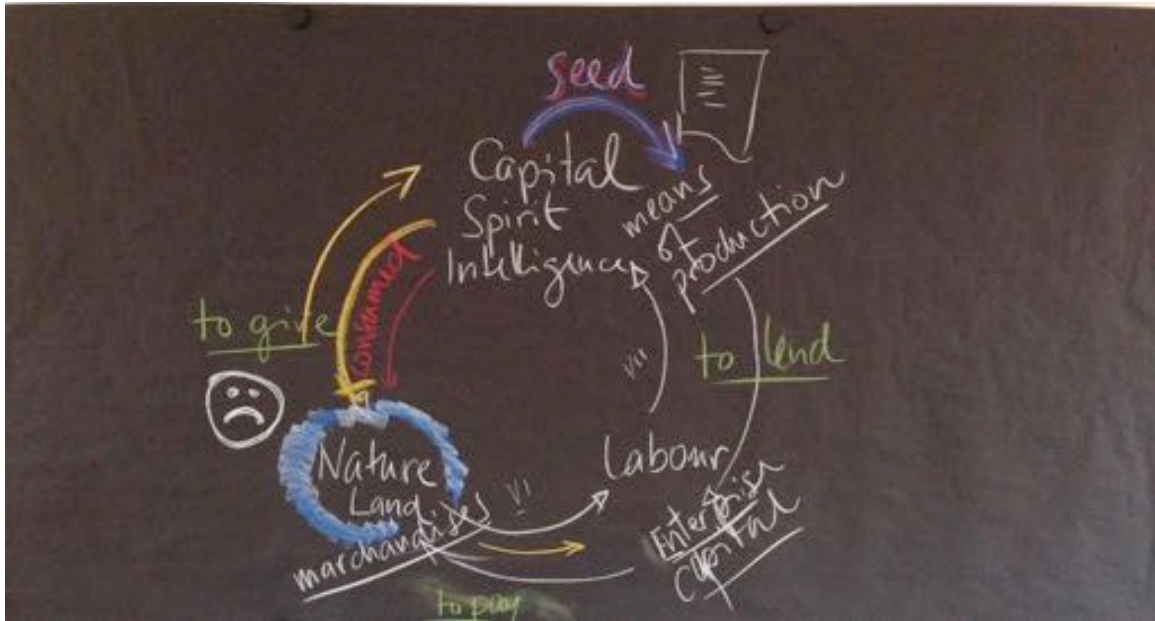 seed
Capital
Spirit
Intelligence
means
of
production
consumed
to give
to lend
VII
Nature
Land
marchandises
VI
Labour
Enterprise
Capital
to pay